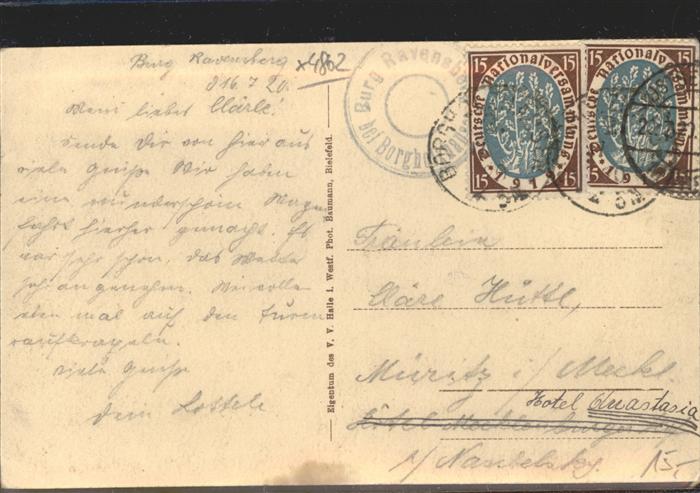 Burg Ravensberg
d 16. 7. 20.
x4862
Mein liebes Clärle!
sende Dir von hier aus
viele Grüße. Wir haben
eine wunderschöne Wagen
fahrt hierher gemacht. Es
war sehr schön, das Wetter
sehr angenehm. Wir wollen
eben mal auf den Turm
raufkrapeln.
viele Grüße
Dein Lottele
Eigentum des V. V. Halle i. Westf. Phot. Baumann, Bielefeld.
Burg Ravensberg
bei Borgholzhausen
15 15
Deutsche Nationalversammlung
1919
15 15
15 15
Deutsche Nationalversammlung
1919
15 15
BORGH
Fräulein
Cläre Hüttl,
Müritz i/ Meckl.
Hotel Anastasia
Hotel Mecklenburger
15,-